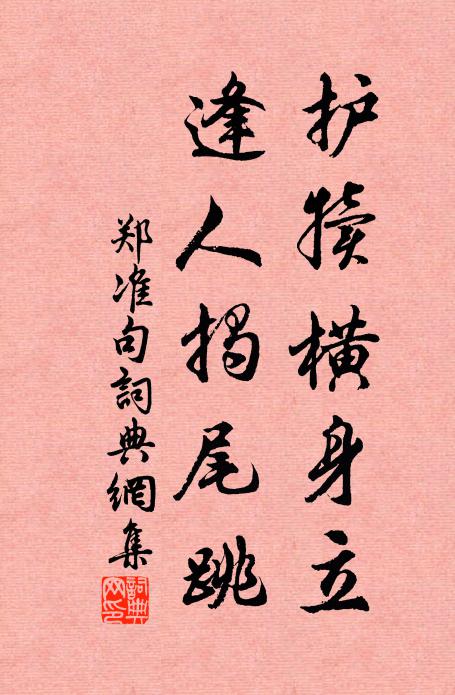 护犊横身立
逢人揭尾跳
郑准句詞典網集
詞典
网印